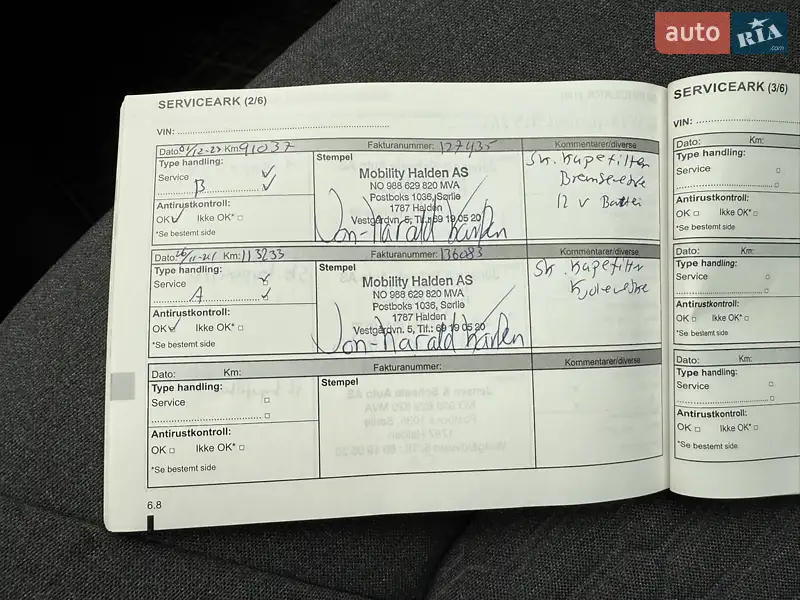 auto RIA .com
SERVICEARK (2/6)
VIN:
Dato: Km: 91037 Fakturanummer: 127435 Kommentarer/diverse
Type handling:
Service
B
Antirustkontroll:
OK Ikke OK*
*Se bestemt side
Stempel
Mobility Halden AS
NO 988 629 820 MVA
Postboks 1036, Sørlie
1787 Halden
Vestgårdvn. 5, Tlf.: 69 19 05 20
Sk. Kupefilter
Bremseveske
12 v Batteri
Dato: Km: 113233 Fakturanummer: 136083 Kommentarer/diverse
Type handling:
Service
A
Antirustkontroll:
OK Ikke OK*
*Se bestemt side
Stempel
Mobility Halden AS
NO 988 629 820 MVA
Postboks 1036, Sørlie
1787 Halden
Vestgårdvn. 5, Tlf.: 69 19 05 20
Sk. Kupefilter
Kjøleveske
Dato: Km: Fakturanummer: Kommentarer/diverse
Type handling:
Service
Antirustkontroll:
OK Ikke OK*
*Se bestemt side
Stempel
6.8
SERVICEARK (3/6)
VIN:
Dato: Km:
Type handling:
Service
Antirustkontroll:
OK Ikke OK*
*Se bestemt side
Dato: Km:
Type handling:
Service
Antirustkontroll:
OK Ikke OK*
*Se bestemt side
Dato: Km:
Type handling:
Service
Antirustkontroll:
OK Ikke OK*
*Se bestemt side